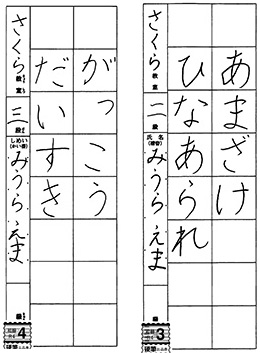 あまざけ
ひなあられ
さくら教室 二段 氏名 みうら えま
3
がっこう
だいすき
さくら教室 三段 しめい みうら えま
4